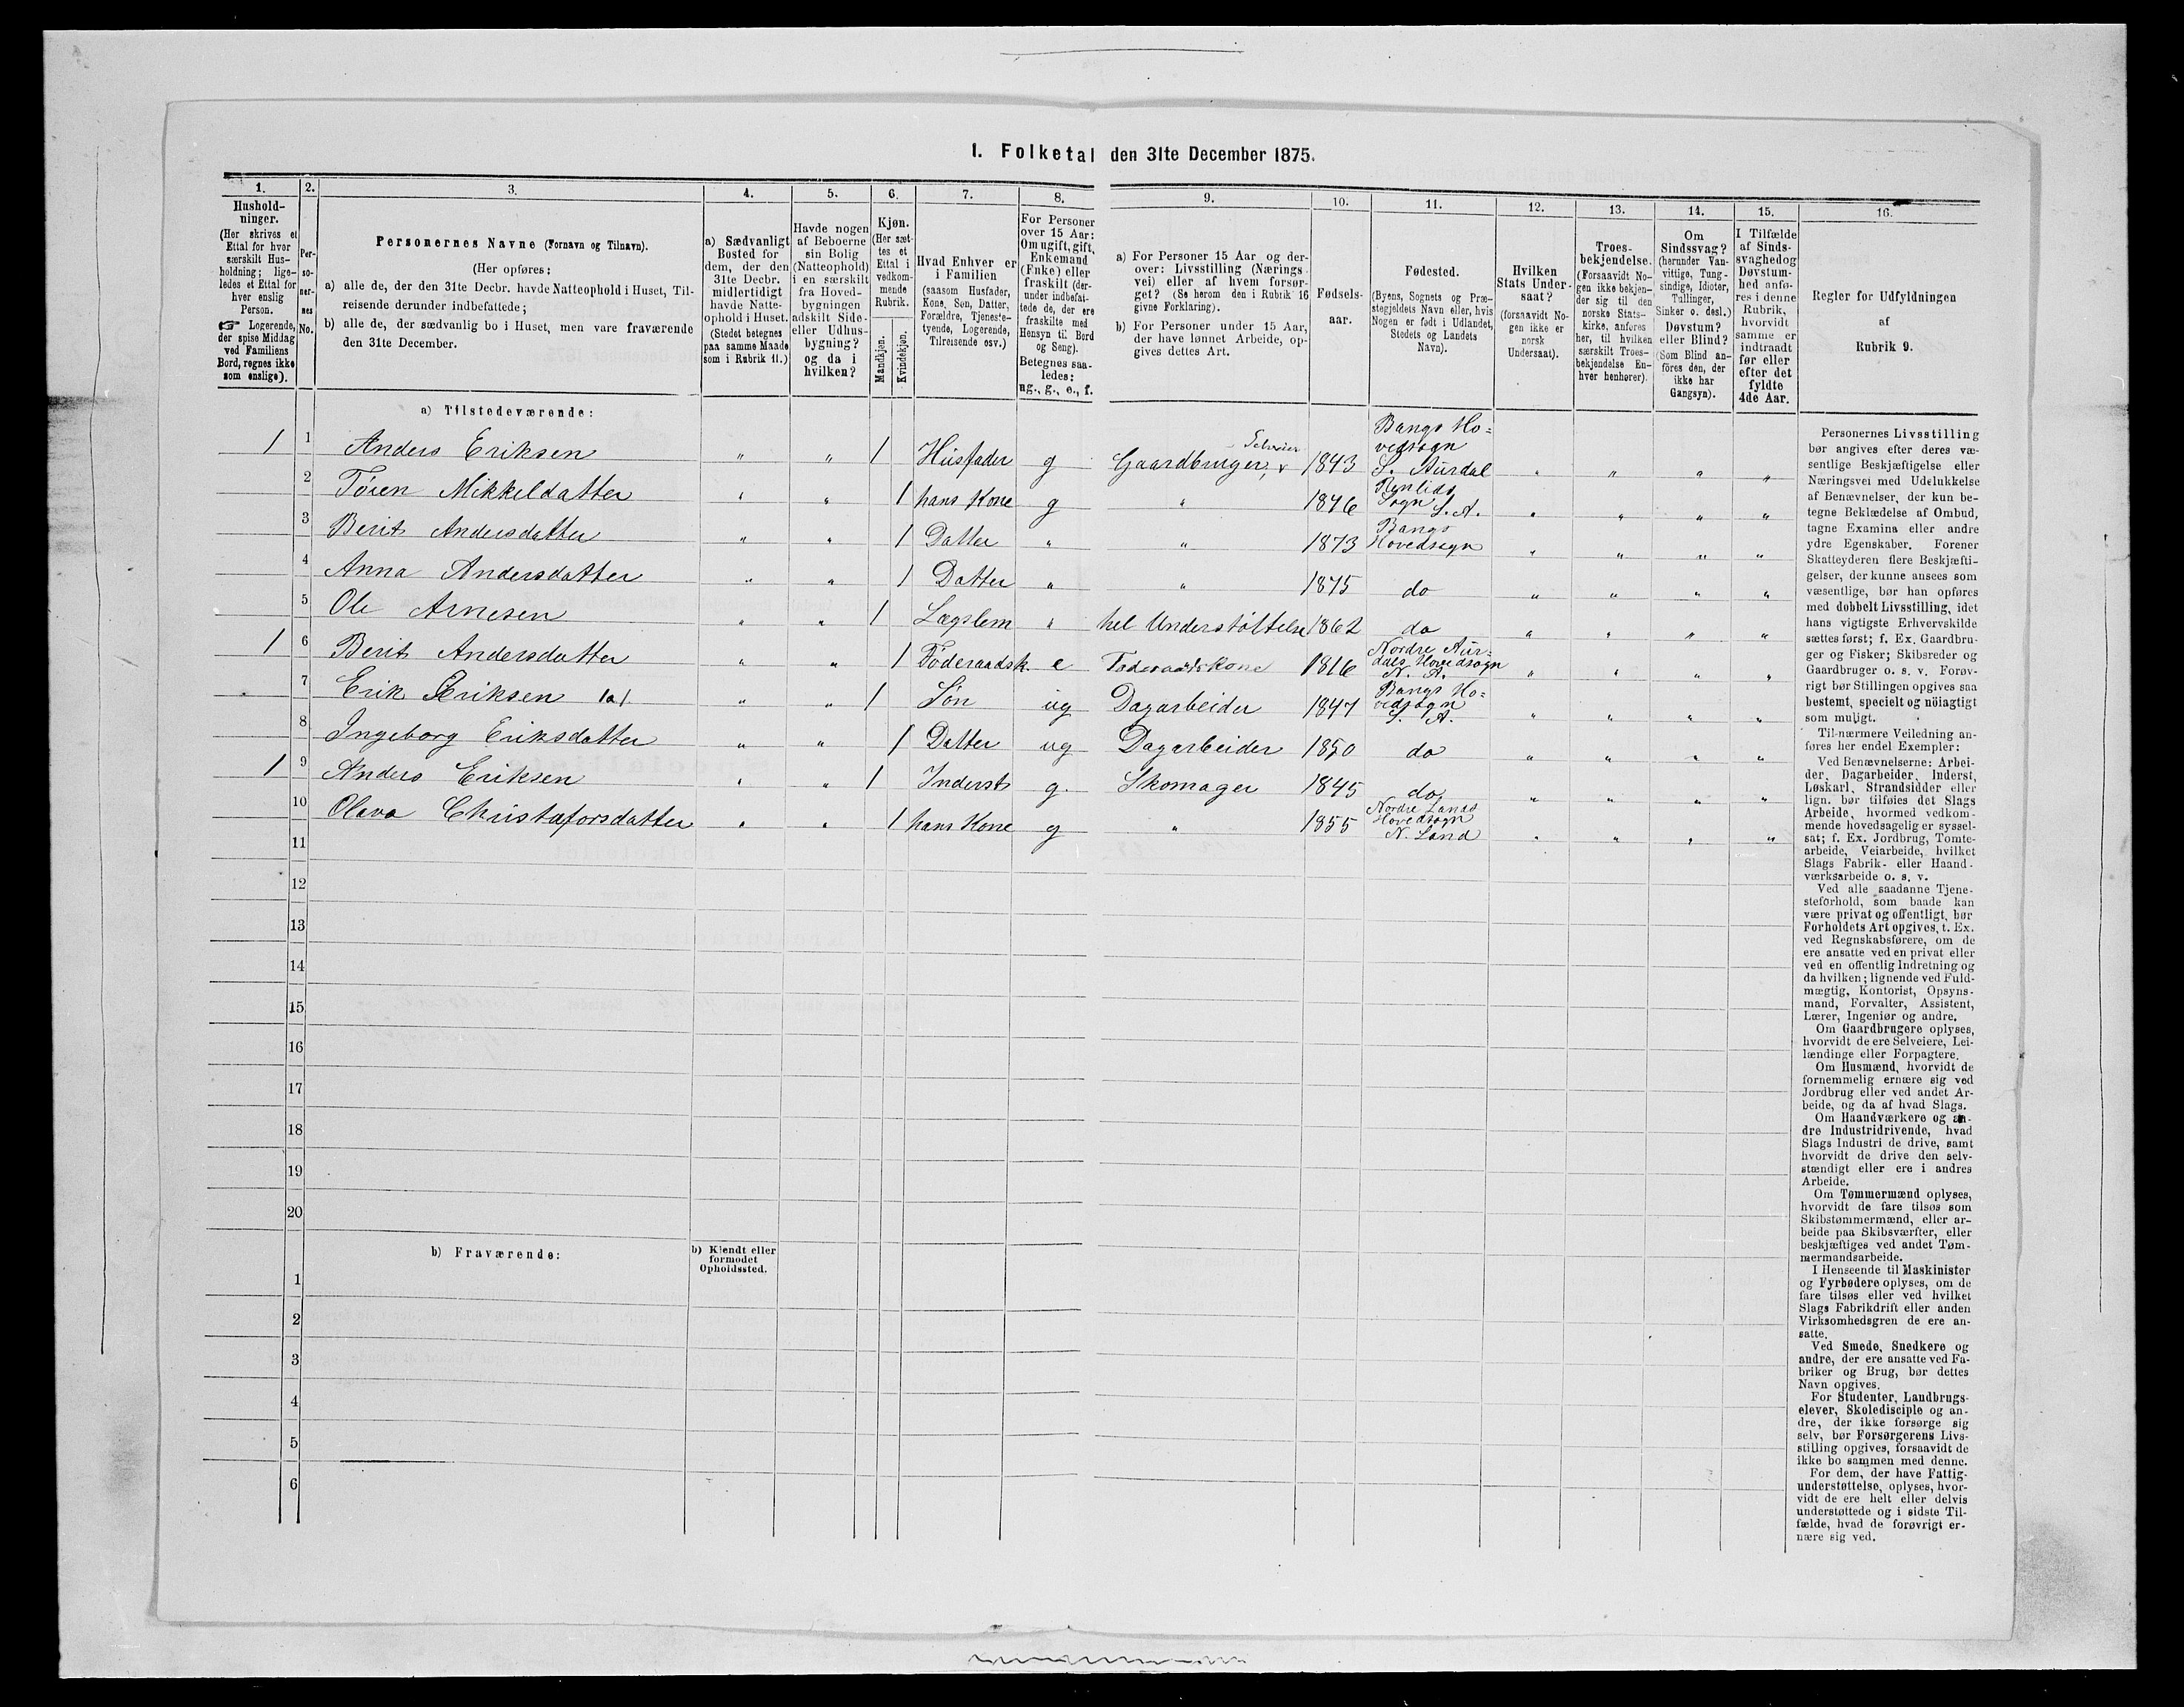 1. Folketal den 31te December 1875.
1. 2. 3. 4. 5. 6. 7. 8. 9. 10. 11. 12. 13. 14. 15. 16.
Hushold-
ninger.
(Her skrives et
Ettal for hver
særskilt Hus-
holdning; lige-
ledes et Ettal for
hver enslig
Person.
☞ Logerende,
der spise Middag
ved Familiens
Bord, regnes ikke
som enslige).
Per-
so-
ner-
nes
No.
Personernes Navne (Fornavn og Tilnavn).
(Her opføres:
a) alle de, der den 31te Decbr. havde Natteophold i Huset, Til-
reisende derunder indbefattede;
b) alle de, der sædvanlig bo i Huset, men vare fraværende
den 31te December.
a) Sædvanligt
Bosted for
dem, der den
31te Decbr.
midlertidigt
havde Natte-
ophold i Huset.
(Stedet betegnes
paa samme Maade
som i Rubrik 11.)
Havde nogen
af Beboerne
sin Bolig
(Natteophold)
i en særskilt
fra Hoved-
bygningen
adskilt Side-
eller Udhus-
bygning?
og da i
hvilken?
Kjøn.
(Her sæt-
tes et
Ettal i
vedkom-
mende
Rubrik.
Mandkjøn.
Kvindekjøn.
Hvad Enhver er
i Familien
(saasom Husfader,
Kone, Søn, Datter,
Forældre, Tjeneste-
tyende, Logerende,
Tilreisende osv.)
For Personer
over 15 Aar:
Om ugift, gift,
Enkemand
(Enke) eller
fraskilt (der-
under indbefat-
tede de, der ere
fraskilte med
Hensyn til Bord
og Seng).
Betegnes saa-
ledes:
ug., g., e., f.
a) For Personer 15 Aar og der-
over: Livsstilling (Nærings-
vei) eller af hvem forsør-
get? (Se herom den i Rubrik 16
givne Forklaring).
b) For Personer under 15 Aar,
der have lønnet Arbeide, op-
gives dettes Art.
Fødsels-
aar.
Fødested.
(Byens, Sognets og Præ-
stegjeldets Navn eller, hvis
Nogen er født i Udlandet,
Stedets og Landets
Navn).
Hvilken
Stats Under-
saat?
(forsaavidt No-
gen ikke er
norsk
Undersaat).
Troes-
bekjendelse.
(Forsaavidt No-
gen ikke bekjen-
der sig til den
norske Stats-
kirke, anføres
her, til hvilken
særskilt Troes-
bekjendelse En-
hver henhører).
Om
Sindssvag?
(herunder Van-
vittige, Tung-
sindige, Idioter,
Tullinger,
Sinker o. desl.)
Døvstum?
eller Blind?
(Som Blind an-
föres den, der
ikke har
Gangsyn).
I Tilfælde
af Sinds-
svaghed og
Døvstum-
hed anfø-
res i denne
Rubrik,
hvorvidt
samme er
indtraadt
før eller
efter det
fyldte
4de Aar.
Regler for Udfyldningen
af
Rubrik 9.
a) Tilstedeværende:
1 1 Anders Eriksen " " 1 Husfader g Gaardbruger, Selveier 1843 Bangs Ho=
vedsogn
S. Aurdal " " " "
2 Töien Mikkeldatter " " 1 hans Kone g " 1846 Renlids
Sogn S. A. " " " "
3 Berit Andersdatter " " 1 Datter " " 1873 Bangs
Hovedsogn " " " "
4 Anna Andersdatter " " 1 Datter " " 1875 do " " " "
5 Ole Arnesen " " 1 Lægslem " hel Understöttelse 1862 do " " " "
1 6 Berit Andersdatter " " 1 Föderaadsk. e Foderaadskone 1816 Nordre Aur-
dals Hovedsogn
N. A. " " " "
7 Erik Eriksen 1a1 " " 1 Søn ug Dagarbeider 1847 Bangs Ho=
vedsogn
S. A. " " " "
8 Ingeborg Eriksdatter " " 1 Datter ug Dagarbeider 1850 do " " " "
1 9 Anders Eriksen " " 1 Inderst g. Skomager 1845 do " " " "
10 Olava Christaforsdatter " " 1 hans Kone g " 1855 Nordre Lands
Hovedsogn
N. Land " " " "
11
12
13
14
15
16
17
18
19
20
b) Fraværende:
b) Kjendt eller
formodet
Opholdssted.
1
2
3
4
5
6
Personernes Livsstilling
bør angives efter deres væ-
sentlige Beskjæftigelse eller
Næringsvei med Udelukkelse
af Benævnelser, der kun be-
tegne Beklædelse af Ombud,
tagne Examina eller andre
ydre Egenskaber. Forener
Skatteyderen flere Beskjæfti-
gelser, der kunne ansees som
væsentlige, bør han opføres
med dobbelt Livsstilling, idet
hans vigtigste Erhvervskilde
sættes først; f. Ex. Gaardbru-
ger og Fisker; Skibsreder og
Gaardbruger o. s. v. Forøv-
rigt bør Stillingen opgives saa
bestemt, specielt og nöiagtigt
som muligt.
Til nærmere Veiledning an-
føres her endel Exempler:
Ved Benævnelserne: Arbei-
der, Dagarbeider, Inderst,
Løskarl, Strandsidder eller
lign. bør tilføies det Slags
Arbeide, hvormed vedkom-
mende hovedsagelig er syssel-
sat; f. Ex. Jordbrug, Tomte-
arbeide, Veiarbeide, hvilket
Slags Fabrik- eller Haand-
værksarbeide o. s. v.
Ved alle saadanne Tjene-
steforhold, som baade kan
være privat og offentligt, bør
Forholdets Art opgives, t. Ex.
ved Regnskabsførere, om de
ere ansatte ved en privat eller
ved en offentlig Indretning og
da hvilken; lignende ved Fuld-
mægtig, Kontorist, Opsyns-
mand, Forvalter, Assistent,
Lærer, Ingeniør og andre.
Om Gaardbrugere oplyses,
hvorvidt de ere Selveiere, Lei-
lændinge eller Forpagtere.
Om Husmænd, hvorvidt de
fornemmelig ernære sig ved
Jordbrug eller ved andet Ar-
beide, og da af hvad Slags.
Om Haandværkere og an-
dre Industridrivende, hvad
Slags Industri de drive, samt
hvorvidt de drive den selv-
stændigt eller ere i andres
Arbeide.
Om Tømmermænd oplyses,
hvorvidt de fare tilsøs som
Skibstømmermænd, eller ar-
beide paa Skibsværfter, eller
beskjæftiges ved andet Tøm-
mermandsarbeide.
I Henseende til Maskinister
og Fyrbødere oplyses, om de
fare tilsøs eller ved hvilket
Slags Fabrikdrift eller anden
Virksomhedsgren de ere an-
satte.
Ved Smede, Snedkere og
andre, der ere ansatte ved Fa-
briker og Brug, bør dettes
Navn opgives.
For Studenter, Landbrugs-
elever, Skoledisciple og an-
dre, der ikke forsørge sig
selv, bør Forsørgerens Livs-
stilling opgives, forsaavidt de
ikke bo sammen med denne.
For dem, der have Fattig-
understøttelse, oplyses, hvor-
vidt de ere helt eller delvis
understøttede og i sidste Til-
fælde, hvad de forøvrigt er-
nære sig ved.